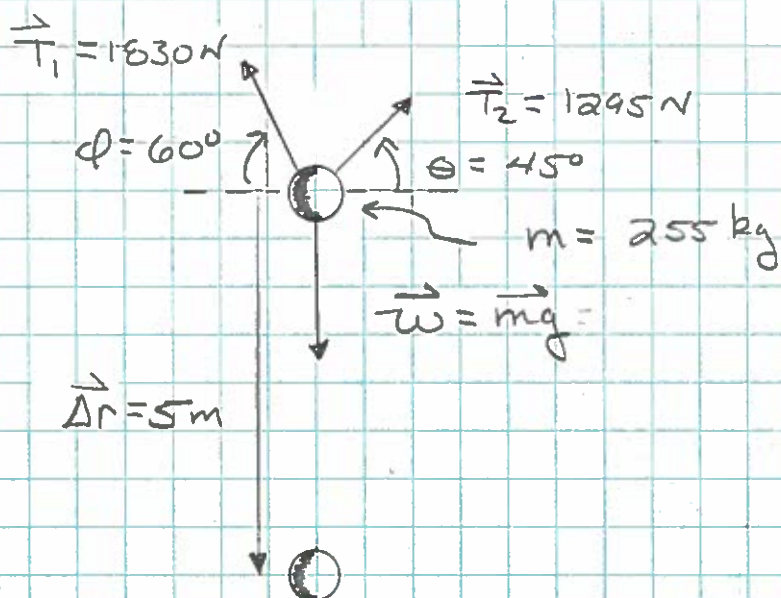 T₁ = 1830N
T₂ = 1295N
φ = 60°
θ = 45°
m = 255 kg
w = mg =
Δr = 5m